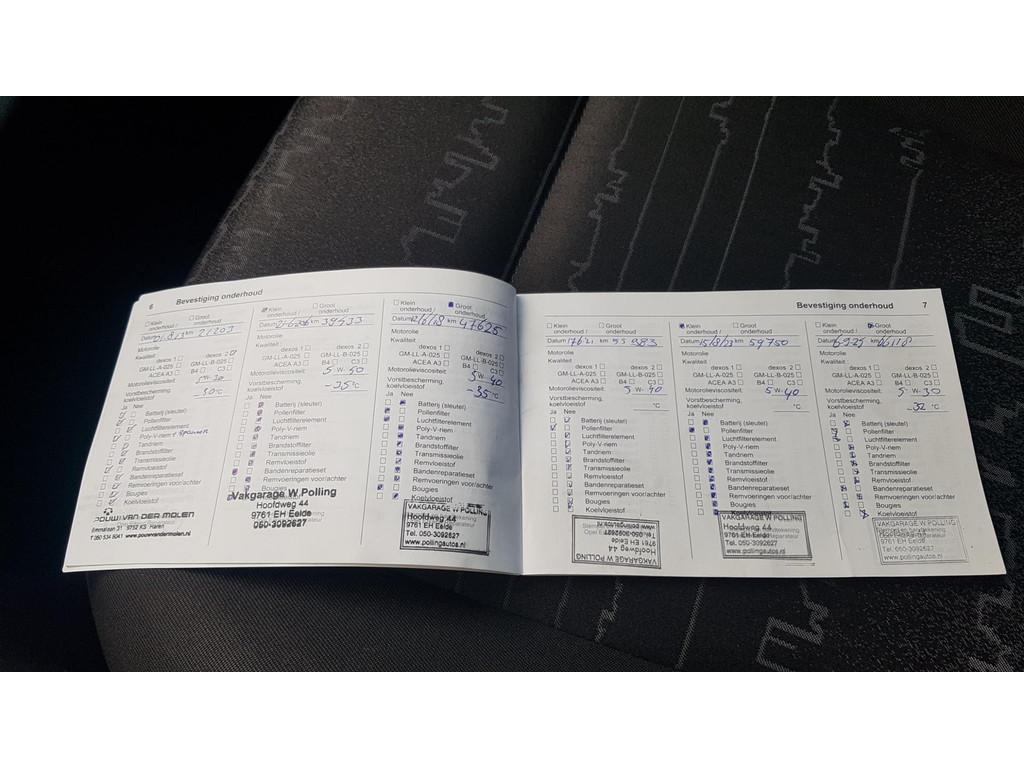 6 Bevestiging onderhoud
Klein onderhoud / Groot onderhoud
Datum km 21203
Motorolie
Kwaliteit
dexos 1 dexos 2
GM-LL-A-025 GM-LL-B-025
ACEA A3 B4 C3
Motorolieviscositeit: 5 W- 30
Vorstbescherming, koelvloeistof -30 °C
Ja Nee
Batterij (sleutel)
Pollenfilter
Luchtfilterelement
Poly-V-riem + spannen
Tandriem
Brandstoffilter
Transmissieolie
Remvloeistof
Bandenreparatieset
Remvoeringen voor/achter
Bougies
Koelvloeistof
POUW VAN DER MOLEN
Emmalaan 31 9752 KS Haren
T 050 534 5041 www.pouwvandermolen.nl
Klein onderhoud / Groot onderhoud
Datum km 39433
Motorolie
Kwaliteit
dexos 1 dexos 2
GM-LL-A-025 GM-LL-B-025
ACEA A3 B4 C3
Motorolieviscositeit: 5 W- 50
Vorstbescherming, koelvloeistof -35 °C
Ja Nee
Batterij (sleutel)
Pollenfilter
Luchtfilterelement
Poly-V-riem
Tandriem
Brandstoffilter
Transmissieolie
Remvloeistof
Bandenreparatieset
Remvoeringen voor/achter
Bougies
Vakgarage W Polling
Hoofdweg 44
9761 EH Eelde
050-3092627
Klein onderhoud / Groot onderhoud
Datum 12/6/18 km 47625
Motorolie
Kwaliteit
dexos 1 dexos 2
GM-LL-A-025 GM-LL-B-025
ACEA A3 B4 C3
Motorolieviscositeit: 5 W- 40
Vorstbescherming, koelvloeistof -35 °C
Ja Nee
Batterij (sleutel)
Pollenfilter
Luchtfilterelement
Poly-V-riem
Tandriem
Brandstoffilter
Transmissieolie
Remvloeistof
Bandenreparatieset
Remvoeringen voor/achter
Bougies
Koelvloeistof
VAKGARAGE W POLLING
Hoofdweg 44
9761 EH Eelde
Tel. 050-3092627
www.pollingautos.nl
Bevestiging onderhoud 7
Klein onderhoud / Groot onderhoud
Datum 17621 km 55383
Motorolie
Kwaliteit
dexos 1 dexos 2
GM-LL-A-025 GM-LL-B-025
ACEA A3 B4 C3
Motorolieviscositeit: 5 W- 40
Vorstbescherming, koelvloeistof °C
Ja Nee
Batterij (sleutel)
Pollenfilter
Luchtfilterelement
Poly-V-riem
Tandriem
Brandstoffilter
Transmissieolie
Remvloeistof
Bandenreparatieset
Remvoeringen voor/achter
Bougies
Koelvloeistof
VAKGARAGE W POLLING
Hoofdweg 44
9761 EH Eelde
Tel. 050-3092627
www.pollingautos.nl
Klein onderhoud / Groot onderhoud
Datum 15/8/23 km 59750
Motorolie
Kwaliteit
dexos 1 dexos 2
GM-LL-A-025 GM-LL-B-025
ACEA A3 B4 C3
Motorolieviscositeit: 5 W- 40
Vorstbescherming, koelvloeistof °C
Ja Nee
Batterij (sleutel)
Pollenfilter
Luchtfilterelement
Poly-V-riem
Tandriem
Brandstoffilter
Transmissieolie
Remvloeistof
Bandenreparatieset
Remvoeringen voor/achter
Bougies
Koelvloeistof
VAKGARAGE W POLLING
Hoofdweg 44
9761 EH Eelde
Tel. 050-3092627
www.pollingautos.nl
Klein onderhoud / Groot onderhoud
Datum 6-2-25 km 66118
Motorolie
Kwaliteit
dexos 1 dexos 2
GM-LL-A-025 GM-LL-B-025
ACEA A3 B4 C3
Motorolieviscositeit: 5 W- 30
Vorstbescherming, koelvloeistof -32 °C
Ja Nee
Batterij (sleutel)
Pollenfilter
Luchtfilterelement
Poly-V-riem
Tandriem
Brandstoffilter
Transmissieolie
Remvloeistof
Bandenreparatieset
Remvoeringen voor/achter
Bougies
Koelvloeistof
VAKGARAGE W POLLING
Hoofdweg 44
9761 EH Eelde
Tel. 050-3092627
www.pollingautos.nl